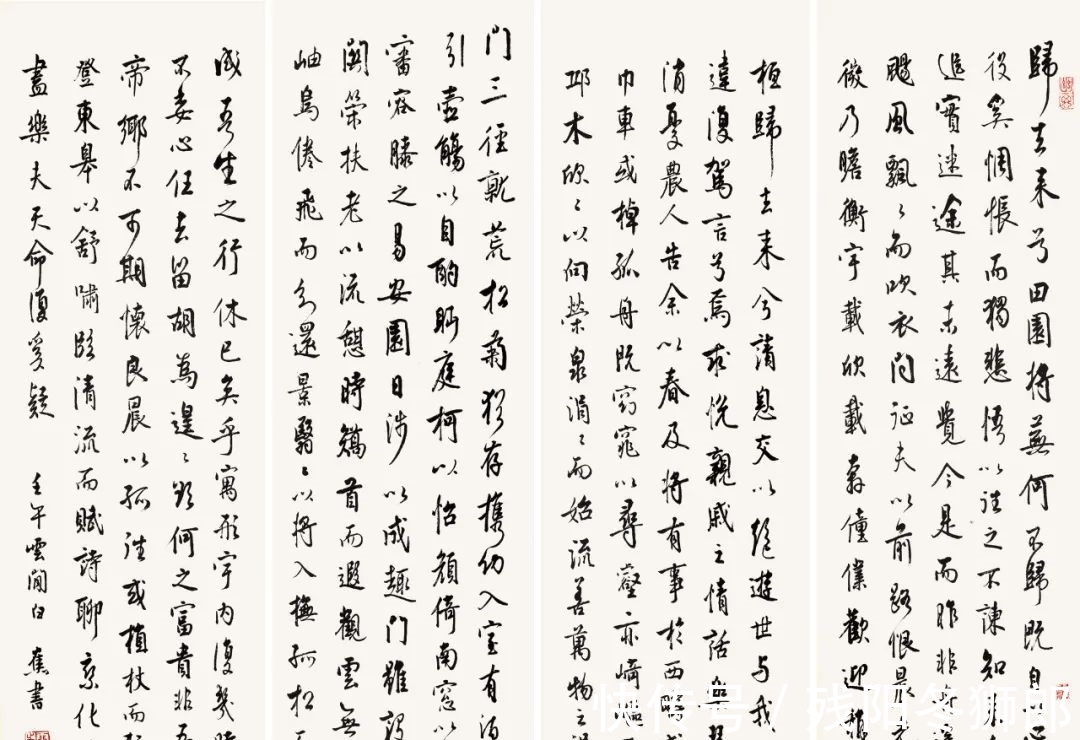 歸去来兮田園將蕪何不歸既自
役奚惆悵而獨悲悟以往之不諫知
追實迷途其未遠覺今是而昨非
颺風飄々而吹衣問征夫以前路恨晨
微乃瞻衡宇載欣載奔僮僕歡迎
桓歸去来兮請息交以絕遊世与我
違復駕言兮焉求悅親戚之情話
消憂農人告余以春及將有事於西
巾車或棹孤舟既窈窕以尋壑亦崎嶇
邱木欣々以向榮泉涓々而始流善萬物之
門三徑就荒松菊猶存攜幼入室有酒
引壺觴以自酌眄庭柯以怡顏倚南窗以
審容膝之易安園日涉以成趣門雖設
關策扶老以流憩時矯首而遐觀雲無
岫鳥倦飛而知還景翳々以將入撫孤松
感吾生之行休已矣乎寓形宇内復幾時
不委心任去留胡為遑々欲何之富貴非吾
帝鄉不可期懷良晨以孤往或植杖而
登東皋以舒嘯臨清流而賦詩聊乘化
盡樂夫天命復奚疑 壬午雲間白蕉書
快传号 / 残阳冬狮郎